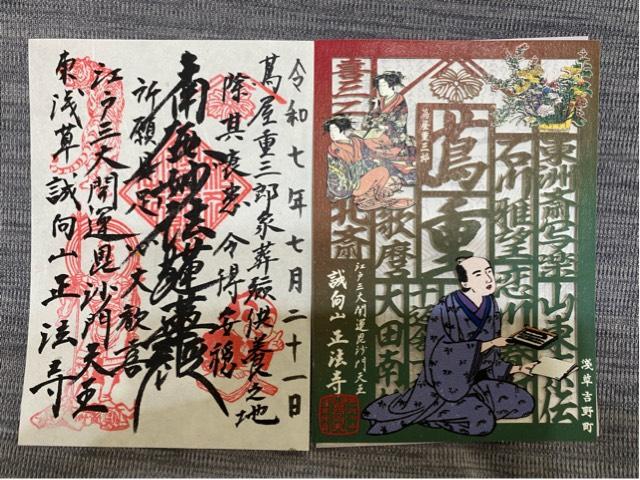 令和七年七月二十一日
蔦屋重三郎家葬瘞供養之地
除其衰患 令得安穏
南無妙法蓮華経
大歓喜
江戸三大開運毘沙門天王
東浅草 誠向山正法寺
東洲斎写楽 山東京伝
石川雅望 恋川
蔦重
蔦屋重三郎
歌麿 大田南
喜三二
北斎
江戸三大開運毘沙門天王
誠向山 正法寺
浅草吉野町